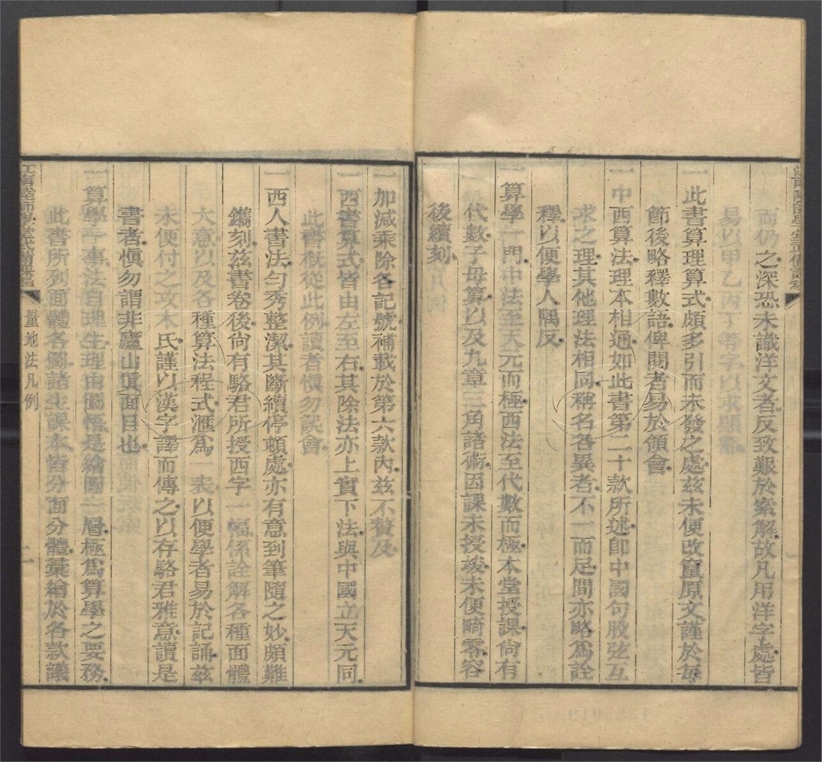 而仍之深恐未識洋文者反致艱於索解故凡用洋字處皆
易以甲乙丙丁等字以求顯
一此書算理算式頗多引而未發之處茲未便改竄原文謹於每
節後略釋數語俾閱者易於領會
一中西算法理本相通如此書第二十款所述卽中國句股弦互
求之理其他理法相同稱名各異者不一而足間亦略爲詮
釋以便學人隅反
一算學一門中法至天元而極西法至代數而極本堂授課尙有
代數子母算以及九章三角諸術因課未授竣未便畸零容
後續刻
一加減乘除各記號補載於第六款內茲不贅及
一西書算式皆由左至右其除法亦上實下法與中國立天元同
此書槪從此例讀者愼勿誤會
一西人書法勻秀整潔其斷續停頓處亦有意到筆隨之妙頗難
鐫刻茲書卷後尙有駱君所授西字一幅係詮解各種面體
大意以及各種算法程式滙爲一表以便學者易於記誦茲
未便付之攻木氏謹以漢字譯而傳之以存駱君雅意讀是
書者愼勿謂非廬山眞面目也
一算學一事法自理生理由圖悟是繪圖一層極爲算學之要務
此書所列面體各圖諸生課本皆分面分體彙繪於各款議
量地法凡例